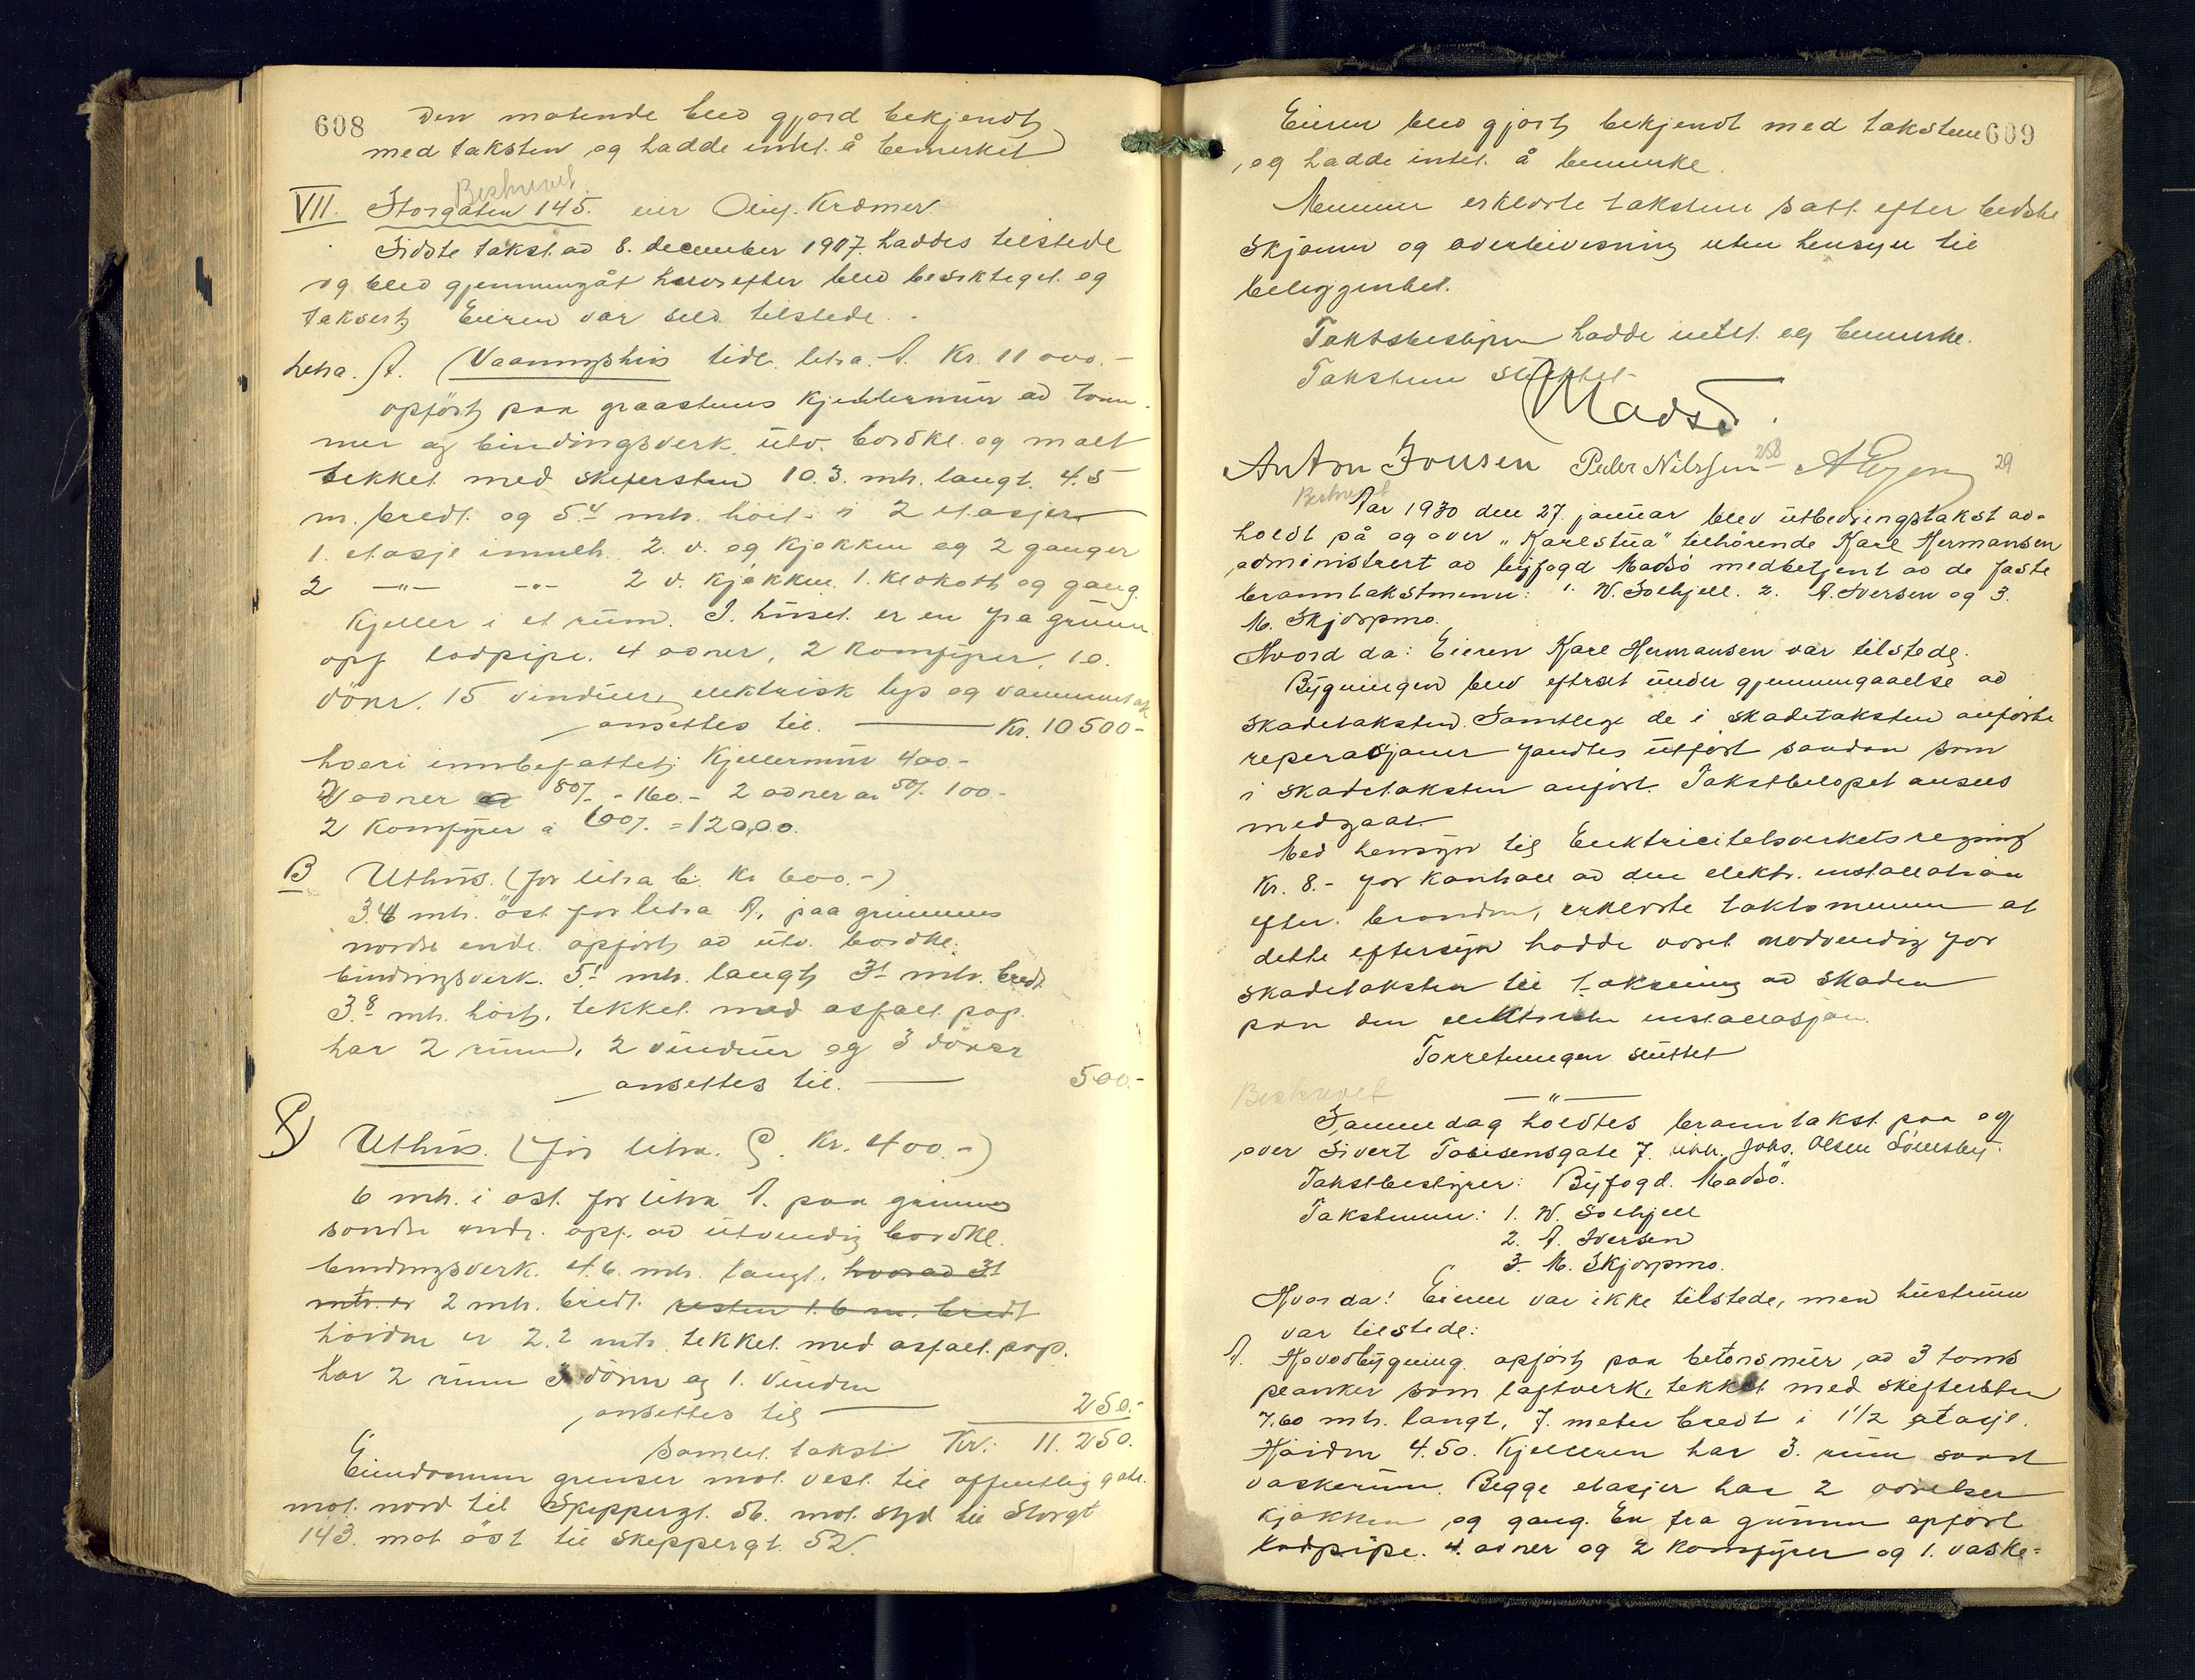 608
Den møtende blev gjord bekjendt
med taksten og hadde intet å bemerket
Beskrevet
VII. Storgaten 145. eier Oluf Krømer.
Sidste takst av 8. december 1917. haddes tilstede
og blev gjennemgåt hvorefter blev besiktiget og
taksert. Eieren var selv tilstede.
Letra. A. (Vaaningshus tidl. letra. A. Kr. 11 000.-
opført paa graastens kjeldermur av tøm-
mer og bindingsverk. utv. bordkl. og malt
tekket med skifersten 10.3. mtr. langt. 4.5
m. bredt. og 5.4 mtr. høit. i 2 etasjer
1. etasje inneh. 2. v. og kjøkken og 2 ganger
2 -"- -"- 2 v. kjøkken. 1. klokott og gang.
Kjeller i et rum. I. huset. er en fra grunn
opf. lodpipe. 4 ovner, 2 komfyrer. 10.
dører. 15 vinduer, elektrisk lys og vannuttak
ansettes til. Kr. 10500-
hvori innbefattet; Kjellermur 400.-
2 ovner a 80/- - 160.- 2 ovner a 50/. 100.-
2 komfyrer a 60/. = 120,00.
B Uthus. (før litra B. Kr 600.-)
3.4 mtr. øst for litra A, paa grunnens
nordre ende. opført av utv. bordkl.
bindingsverk. 5.1 mtr. langt 3.1 mtr. bredt
3.8 mtr. høit, tekket med asfalt. pap.
har 2 rum, 2 vinduer og 3 dører
ansettes til. 500.-
C) Uthus. (før litra. C. Kr. 400.-)
6 mtr. i øst for litra A. paa grunnens
søndre ende. opf. av utvendig bordkl.
bindingsverk. 4.6. mtr. langt. hvorav 3.1
mtr. er 2 mtr. bredt. resten 1.6 m. bredt
høiden er 2.2 mtr. tekket med asfalt. pap.
har 2 rum 3 dører og 1. vindu
ansettes til 250.-
Samlet takst Kr: 11.250.
Eiendommen grenser mot vest til offentlig gate.
mot. nord til Skippergt. 56. mot syd til Storgt
143. mot øst til Skippergt. 52.
609
Eieren blev gjort bekjendt med taksten
og hadde intet å bemerke.
Mennene erklærte taksten satt efter bedste
skjønn og overbevisning uten hensyn til
beliggenhet.
Takstbestyren hadde intet og bemerke.
Taksten sluttet
Madsø.
Anton Jonsen Peder Nilssen 258 29
Beskrevet
Aar 1930 den 27. januar blev utbedringstakst av-
holdt på og over "Karlstua" tilhørende Karl Hermansen
administrert av byfogd Madsø medbetjent av de faste
branntakstmenn: 1. W. Solhjell. 2. A. Iversen og 3.
M. Skjorpmo.
Hvord da: Eieren Karl Hermansen var tilstede.
Bygningen blev efterset under gjennemgaaelse av
skadetaksten. Samtlige de i skadetaksten anførte
reperasjoner fandtes utført saadan som
i skadetaksten anført. Takstbeløpet ansees
medgaat.
Med hensyn til Elektricitetsverkets regning
Kr. 8.- for kontroll av den elektr. installation
efter brannden, erklærte takstmennene at
dette eftersyn hadde været nødvendig for
skadetaksten til taksering av skaden
paa den elektriske installasjon.
Forretningen sluttet
Beskrevet
— " —
Samme dag holdtes branntakst paa og
over Sivert Tobisensgate 7. tilh. Johs. Olsen
Takstbestyrer: Byfogd. Madsø.
Takstmenn: 1. W. Solhjell
2. A. Iversen
3. M. Skjorpmo.
Hvor da! Eieren var ikke tilstede, men hustruen
var tilstede:
A. Hovedbygning. opført paa betonsmur, av 3 toms
planker som laftverk, tekket med skiffersten
7.60 mtr. langt, 7. meter bredt i 1 1/2 etasje.
Høiden 4.50. Kjelleren har 3. rum samt
vaskerum. Begge etasjer har 2 værelser
kjøkken og gang. En fra grunnen opført
lodpipe. 4. ovner og 2 komfyrer og 1. vaske=